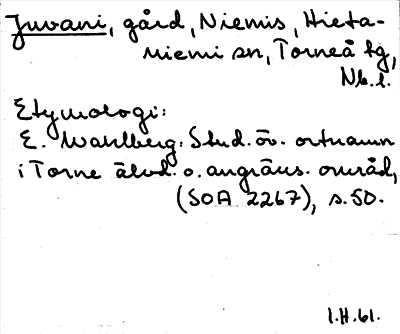 Juvani, gård, Niemis, Hieta-
niemi sn, Torneå tg,
Nb. l.
Etymologi:
E. Wahlberg: Stud. öv. ortnamn
i Torne älvd. o. angräns. område,
(SOA 2267), s. 50.
I.H. 61.